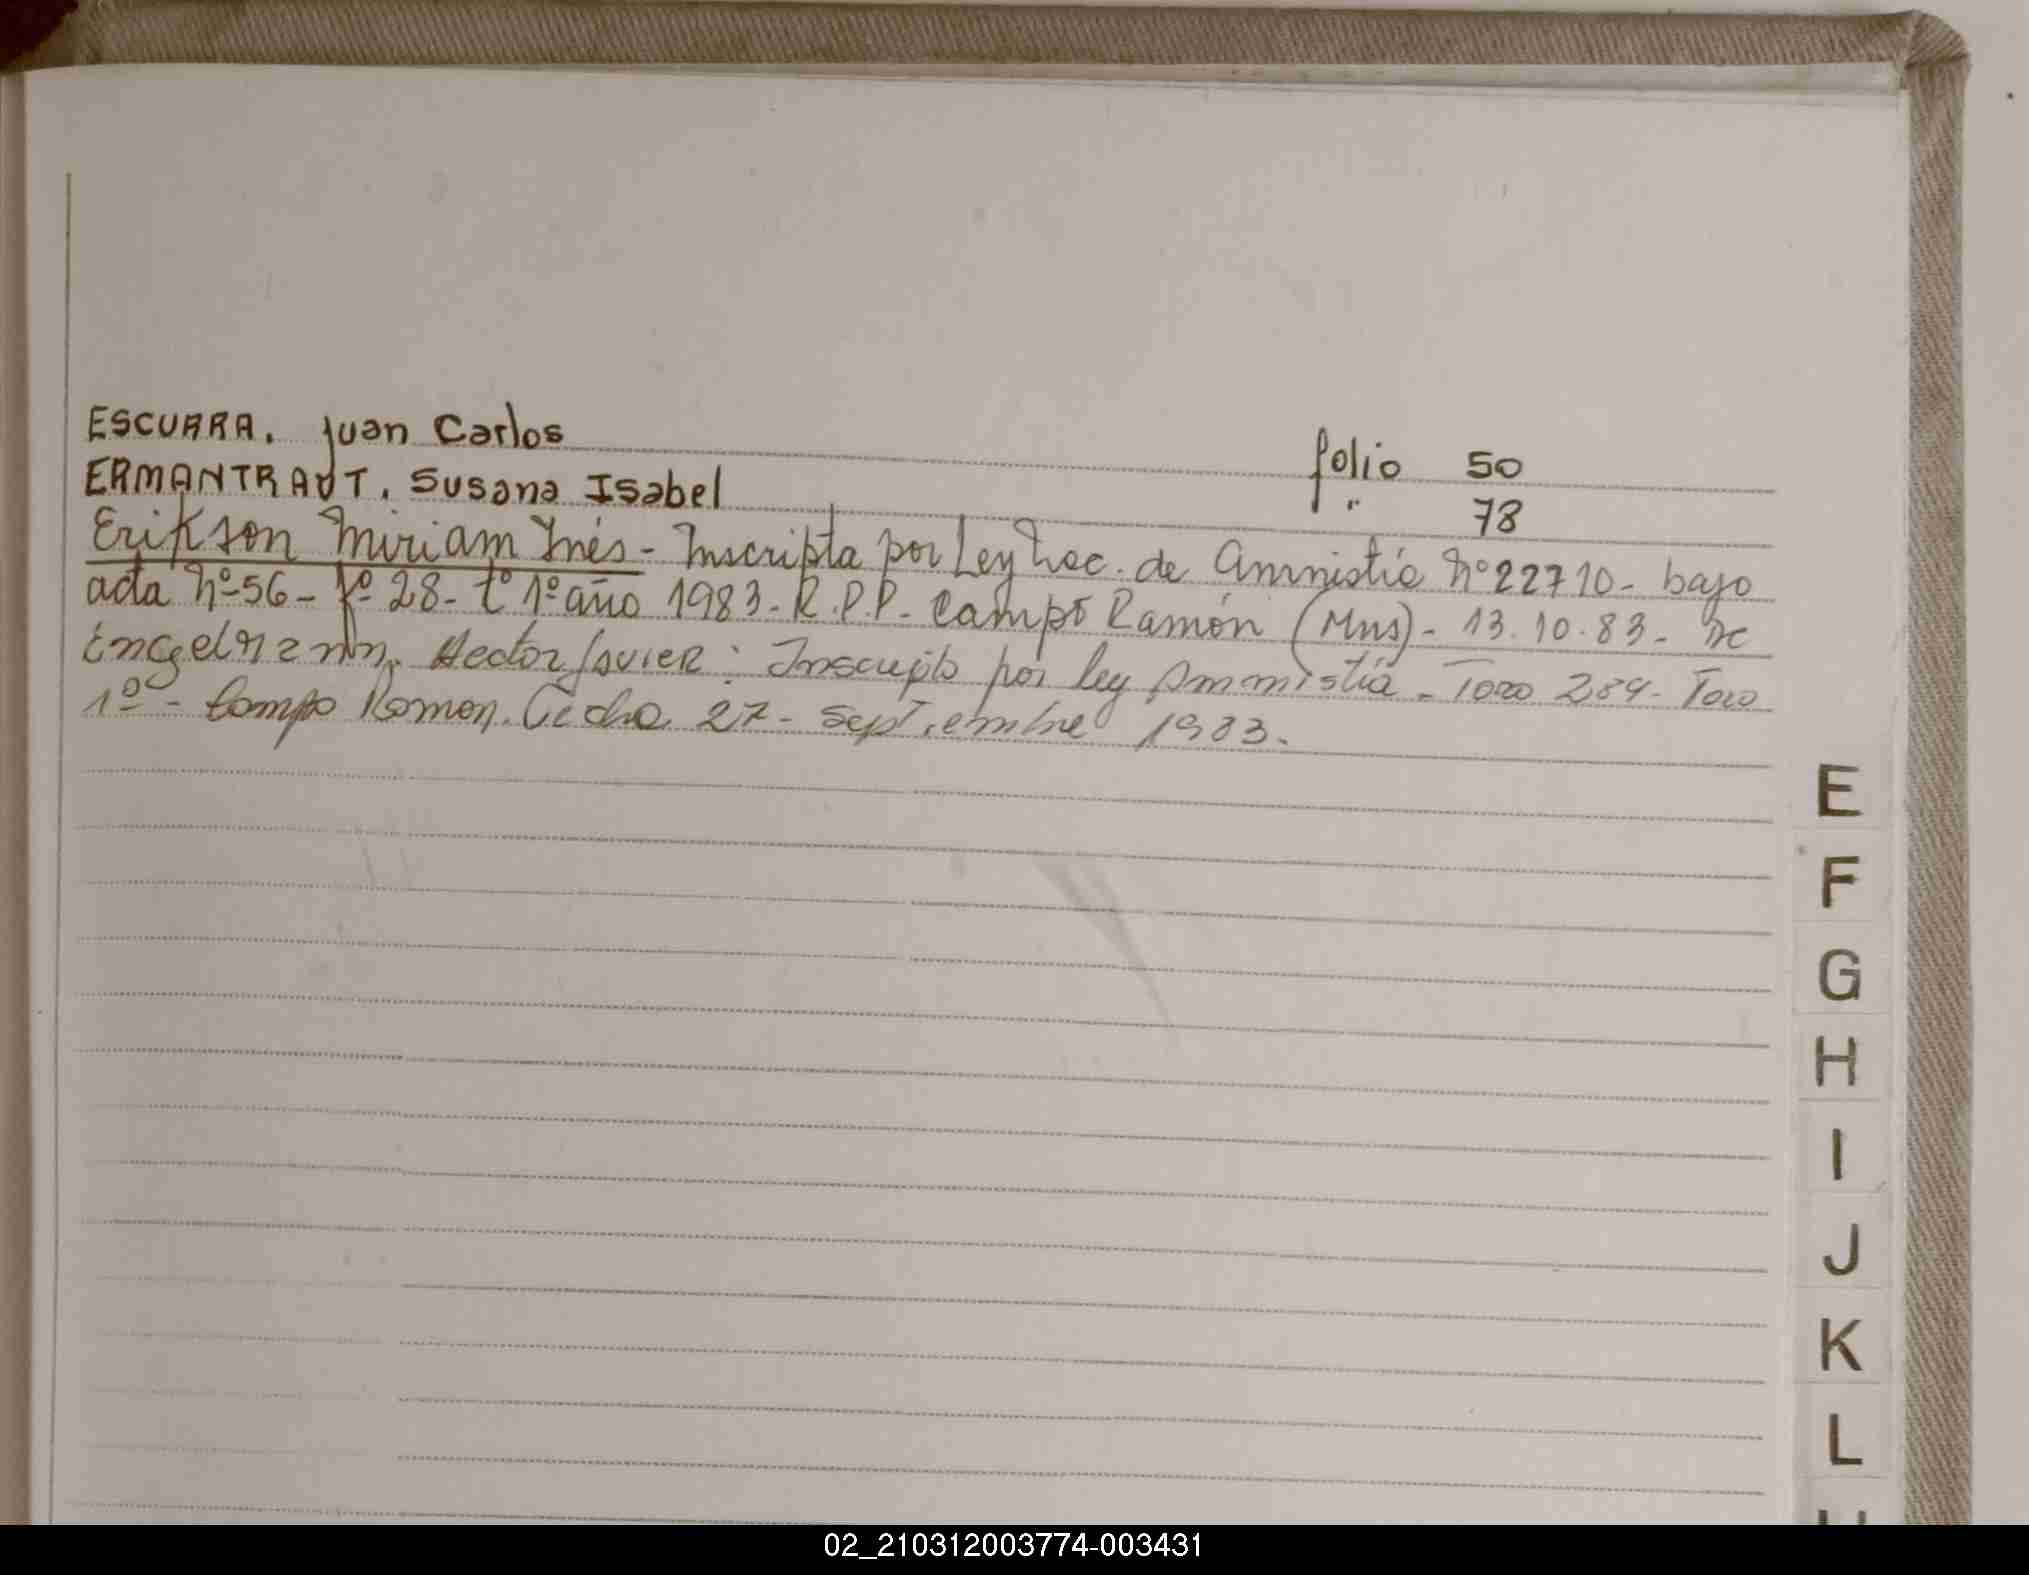 ESCURRA. Juan Carlos folio 50
ERMANTRAUT. Susana Isabel " 78
Erikson Miriam Inés - Inscripta por Ley Nac. de Amnistía Nº 22710 - bajo
acta Nº 56 - fº 28 - tº 1º año 1983 - R.P.P. - Campo Ramón (Mns) - 13.10.83 -
Hector Javier: Inscripto por ley Ammistia - Tomo 284 - Tomo
1º - Campo Ramon. Fecha 27 - Septiembre 1983.
E
F
G
H
I
J
K
L
02_210312003774-003431